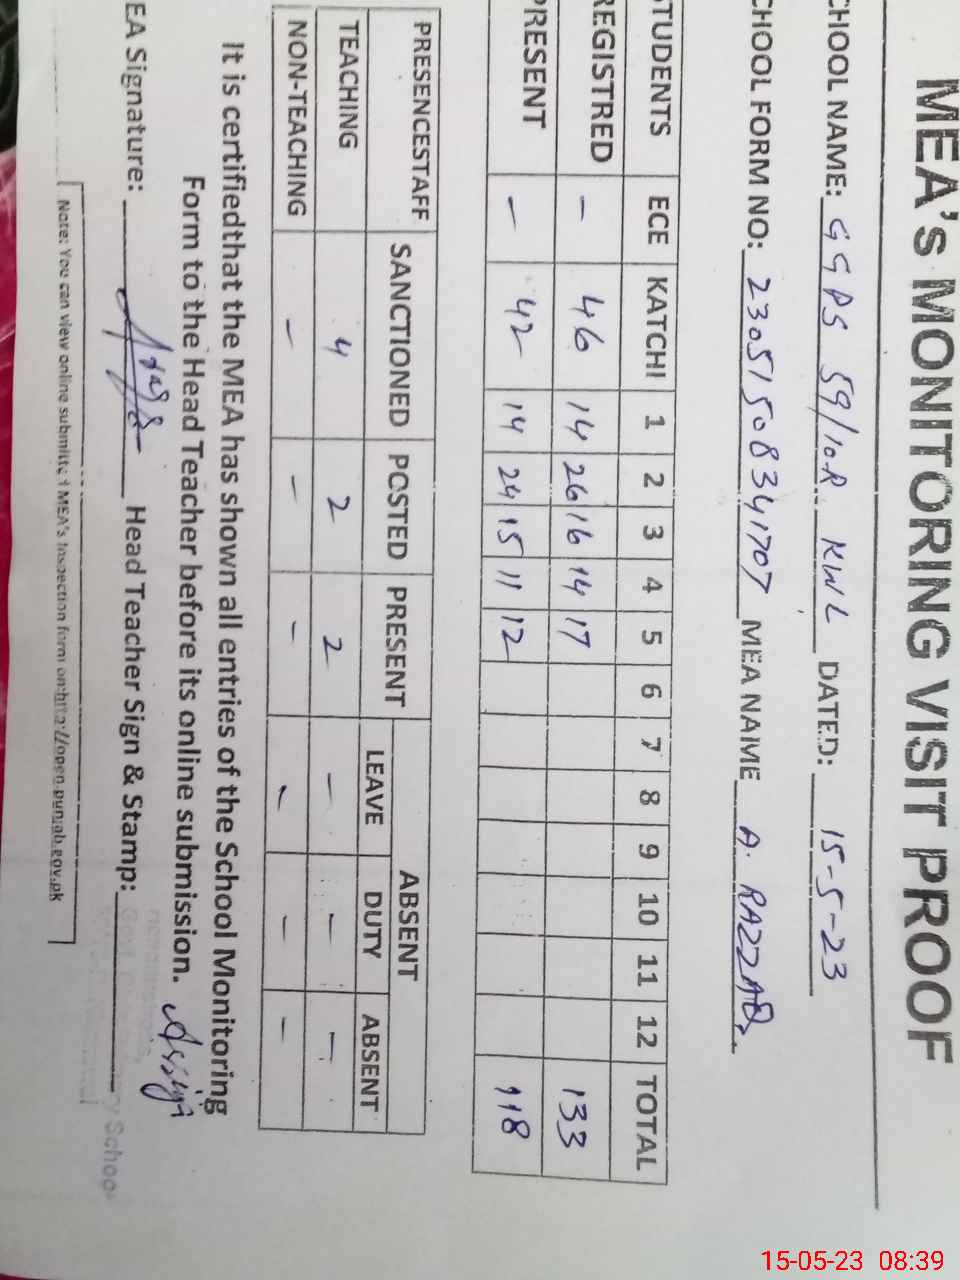 MEA's MONITORING VISIT PROOF
CHOOL NAME: GGPS 59/10R KWL DATED: 15-5-23
CHOOL FORM NO: 23051508341707 MEA NAME A. RAZZAQ.
STUDENTS ECE KATCHI 1 2 3 4 5 6 7 8 9 10 11 12 TOTAL
REGISTRED - 46 14 26 16 14 17 133
PRESENT - 42 14 24 15 11 12 118
PRESENCESTAFF SANCTIONED POSTED PRESENT ABSENT
LEAVE DUTY ABSENT
TEACHING 4 2 2 - - -
NON-TEACHING - - - - - -
It is certifiedthat the MEA has shown all entries of the School Monitoring
Form to the Head Teacher before its online submission.
EA Signature: Head Teacher Sign & Stamp:
y School
Note: You can view online submitted MEA's Inspection form on http://open.punjab.gov.pk
15-05-23 08:39